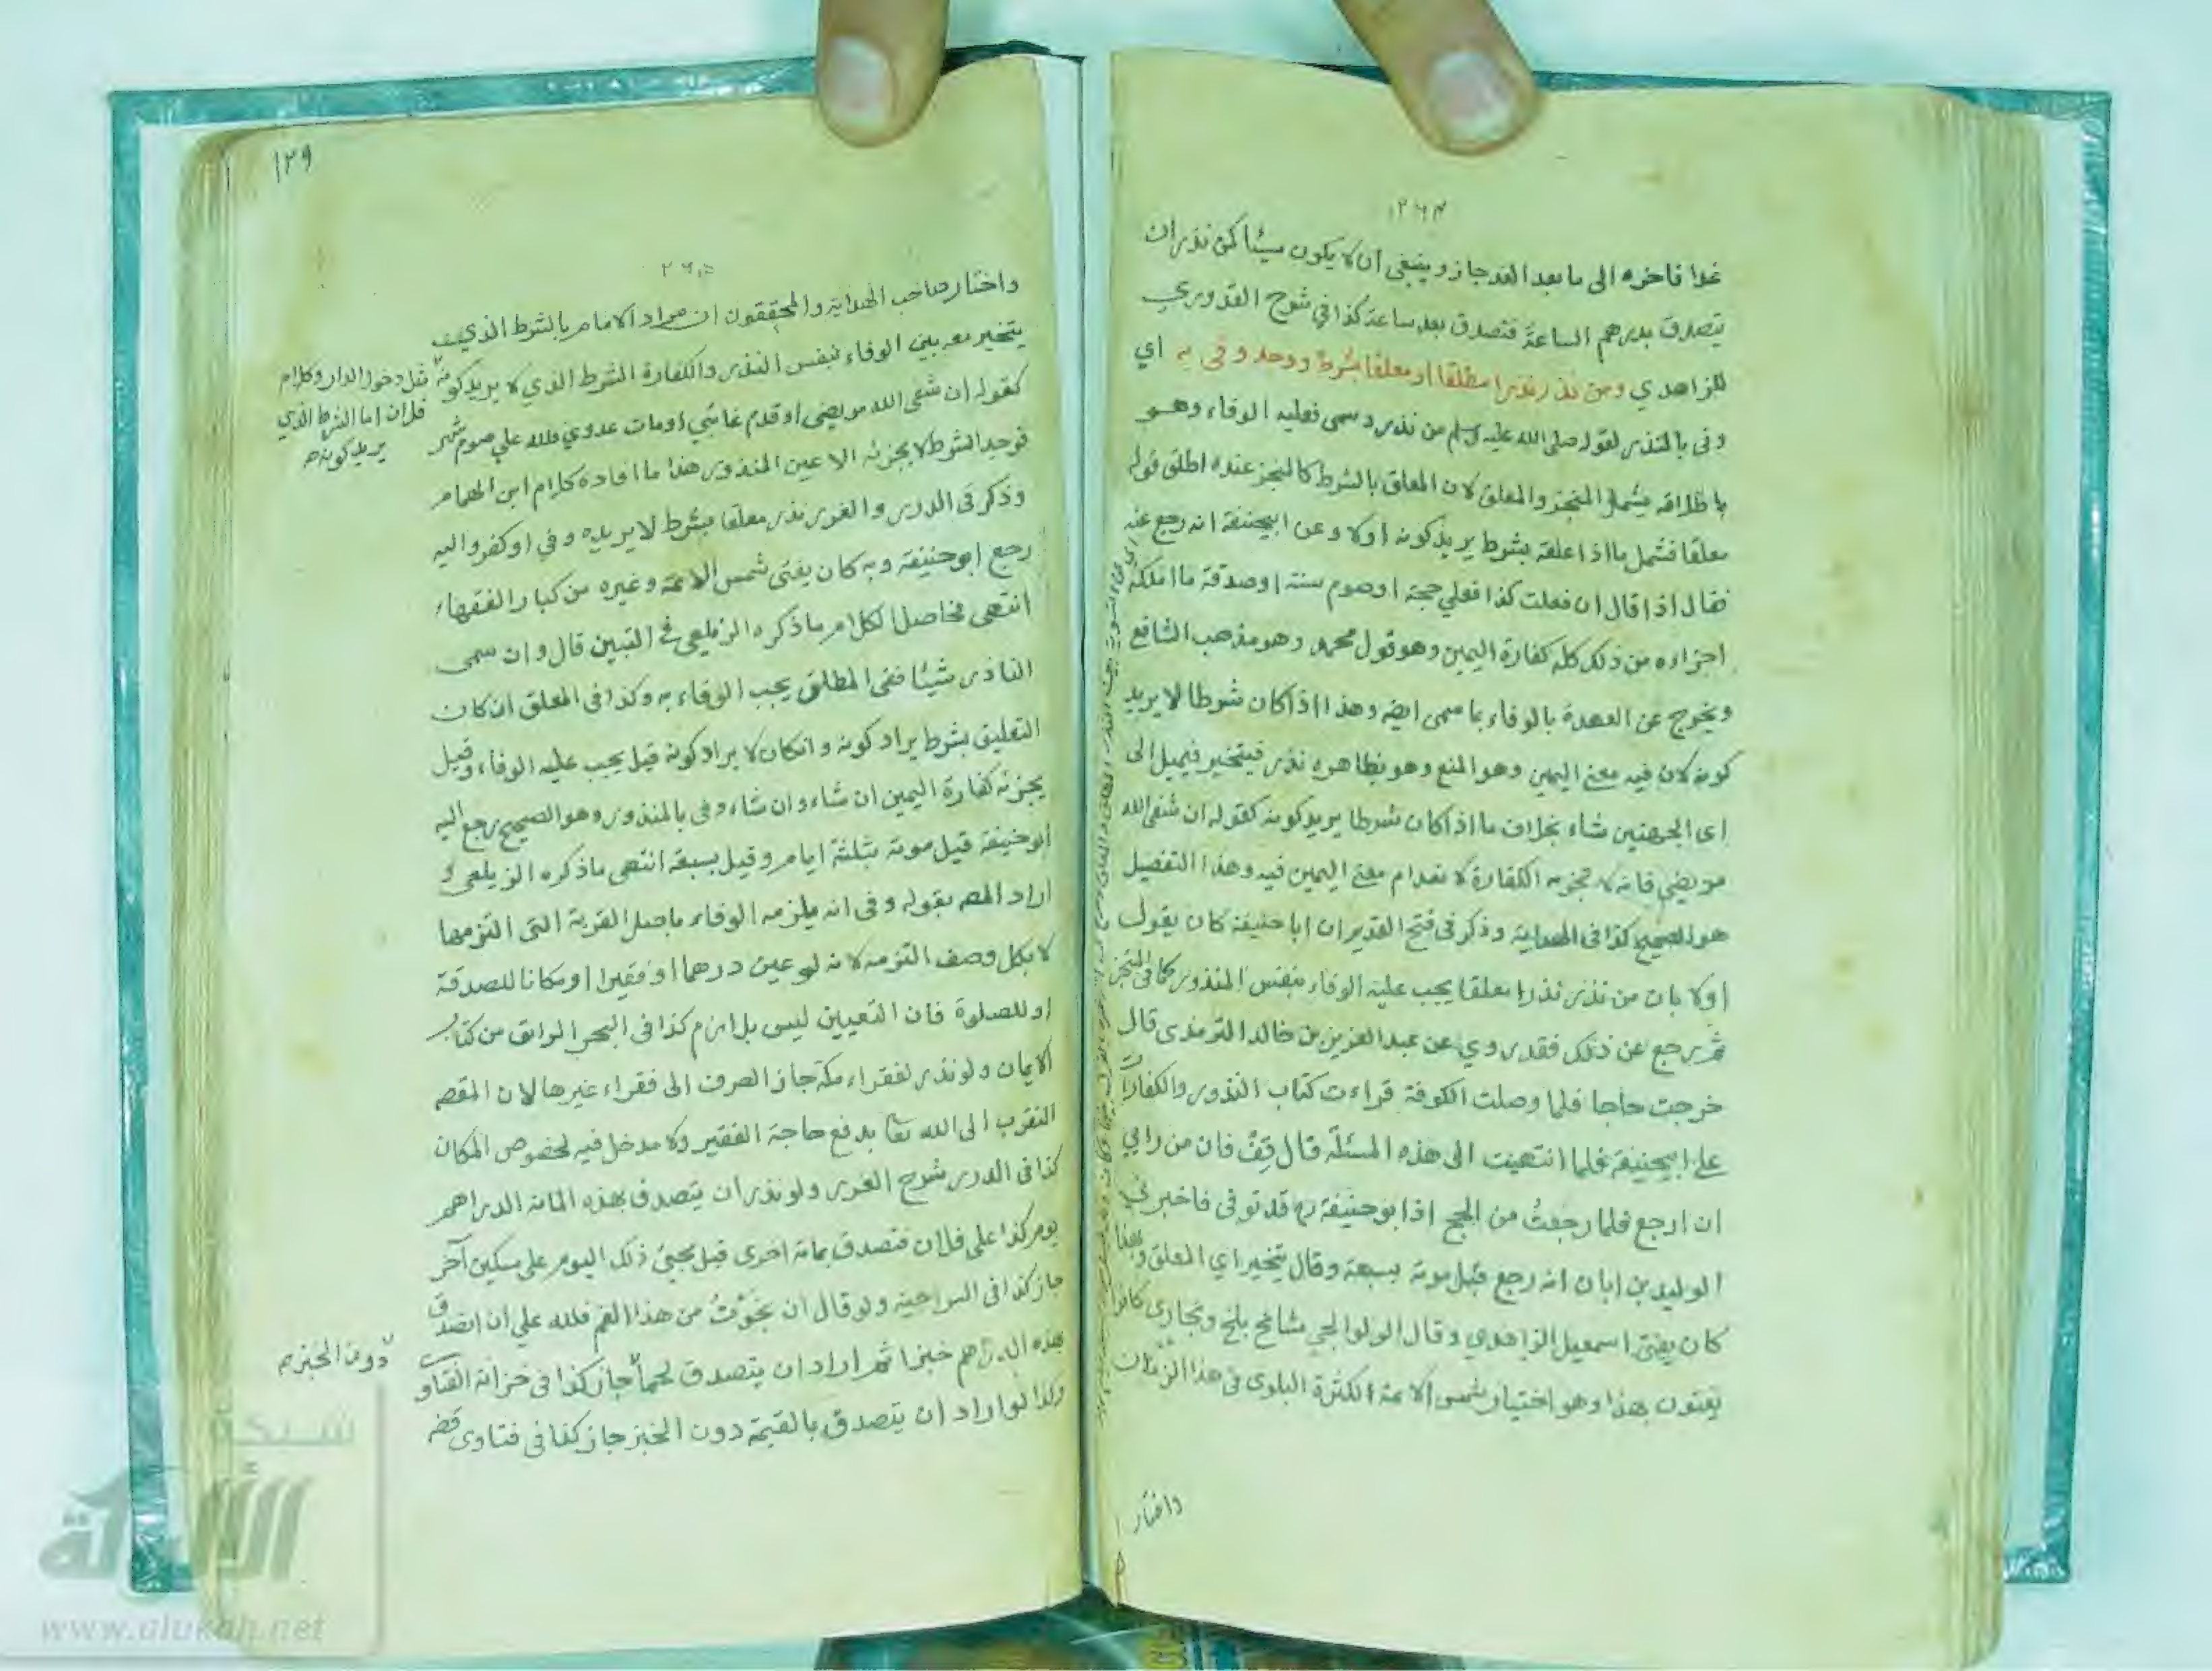 غدا فاخره الى ما بعد الغد جاز وينبغي ان لا يكون مسيئا كمن نذر ان
يتصدق بدرهم الساعة فتصدق بعد ساعة كذا في شرح القدوري
للزاهدي ومن نذر نذرا مطلقا او معلقا بشرط ووجد وفى به اي
وفى بالنذر لقوله صلى الله عليه وسلم من نذر وسمى فعليه الوفاء وهو
باطلاقه يشمل المنجز والمعلق لان المعلق بالشرط كالمنجز عنده اطلق قوله
معلقا فشمل ما اذا علقه بشرط يريد كونه اولا وعن ابيحنيفة انه رجع عنه
فقال اذا قال ان فعلت كذا فعلي حجة او صوم سنة او صدقة ما املكه
اجزاءه من ذلك كله كفارة اليمين وهو قول محمد وهو مذهب الشافع
ويخرج عن العهدة بالوفاء بما سمى ايضه وهذا اذا كان شرطا لا يريد
كونه لان فيه معنى اليمين وهو المنع وهو بظاهره نذر فيتخير فيميل الى
اى الجهتين شاء بخلاف ما اذا كان شرطا يريد كونه كقوله ان شفى الله
مريضي فانه لا تجزيه الكفارة لانعدام معنى اليمين فيه وهذا التفصيل
هو الصحيح كذا في الهداية وذكر في فتح القدير ان ابا حنيفة كان يقول
اولا بان من نذر نذرا معلقا يجب عليه الوفاء بنفس المنذور كما في المنجز
ثم رجع عن ذلك فقد روي عن عبد العزيز بن خالد الترمذى قال
خرجت حاجا فلما وصلت الكوفة قراءت كتاب النذور والكفارات
على ابيحنيفة فلما انتهيت الى هذه المسئلة قال قف فان من رايي
ان ارجع فلما رجعت من الحج اذا ابو حنيفة ره قد توفى فاخبرني
الوليد بن ابان انه رجع قبل موته بسبعة وقال يتخير اي المعلق وبهذا
كان يفتى اسمعيل الزاهدي وقال الولوالجي مشائخ بلخ وبخارى كانوا
يفتون بهذا وهو اختيار شمس الائمة لكثرة البلوى في هذا الزمان
واختار
١٢٩
واختار صاحب الهداية والمحققون ان مراد الامام بالشرط الذي
يتخير معه بين الوفاء بنفس النذر والكفارة الشرط الذي لا يريد كونه
مثل دخول الدار وكلام
فلان اما الشرط الذي
يريد كونه صح
كقوله ان شفى الله مريضي او قدم غائبي او مات عدوي فلله علي صوم شهر
فوجد الشرط لا يجزئه الا عين المنذور هذا ما افاده كلام ابن الهمام
وذكر في الدرر والغرر نذر معلقا بشرط لا يريده وفي او كفر واليه
رجع ابو حنيفة وبه كان يفتى شمس الائمة وغيره من كبار الفقهاء
انتهى فحاصل الكلام ما ذكره الزيلعي في التبيين قال وان سمى
الناذر شيئا ففى المطلق يجب الوفاء به وكذا في المعلق ان كان
التعليق بشرط يراد كونه وانكان لا يراد كونه قيل يجب عليه الوفاء وقيل
يجزئه كفارة اليمين ان شاء وان شاء وفى بالمنذور وهو الصحيح رجع اليه
ابو حنيفة قبل موته بثلثة ايام وقيل بسبعة انتهى ما ذكره الزيلعي و
اراد المص بقوله وفى انه يلزمه الوفاء باصل القربة التى التزمها
لا بكل وصف التزمه لانه لو عين درهما او فقيرا او مكانا للصدقة
او للصلوة فان التعيين ليس بلازم كذا في البحر الرائق من كتاب
الايمان ولو نذر لفقراء مكة جاز الصرف الى فقراء غيرها لان المقص
التقرب الى الله تعا بدفع حاجة الفقير ولا مدخل فيه لخصوص المكان
كذا في الدرر شرح الغرر ولو نذر ان يتصدق بهذه المائة الدراهم
يوم كذا على فلان فتصدق بمائة اخرى قبل مجئ ذلك اليوم على مسكين آخر
جاز كذا في السراجية ولو قال ان نجوت من هذا الغم فلله علي ان اتصدق
بهذه الدراهم خبزا ثم اراد ان يتصدق لحما جاز كذا في خزانة الفتاو
دون الخبز صح
وكذا لو اراد ان يتصدق بالقيمة دون الخبز جاز كذا في فتاوى قضه
شبكة
الألوكة
www.alukah.net